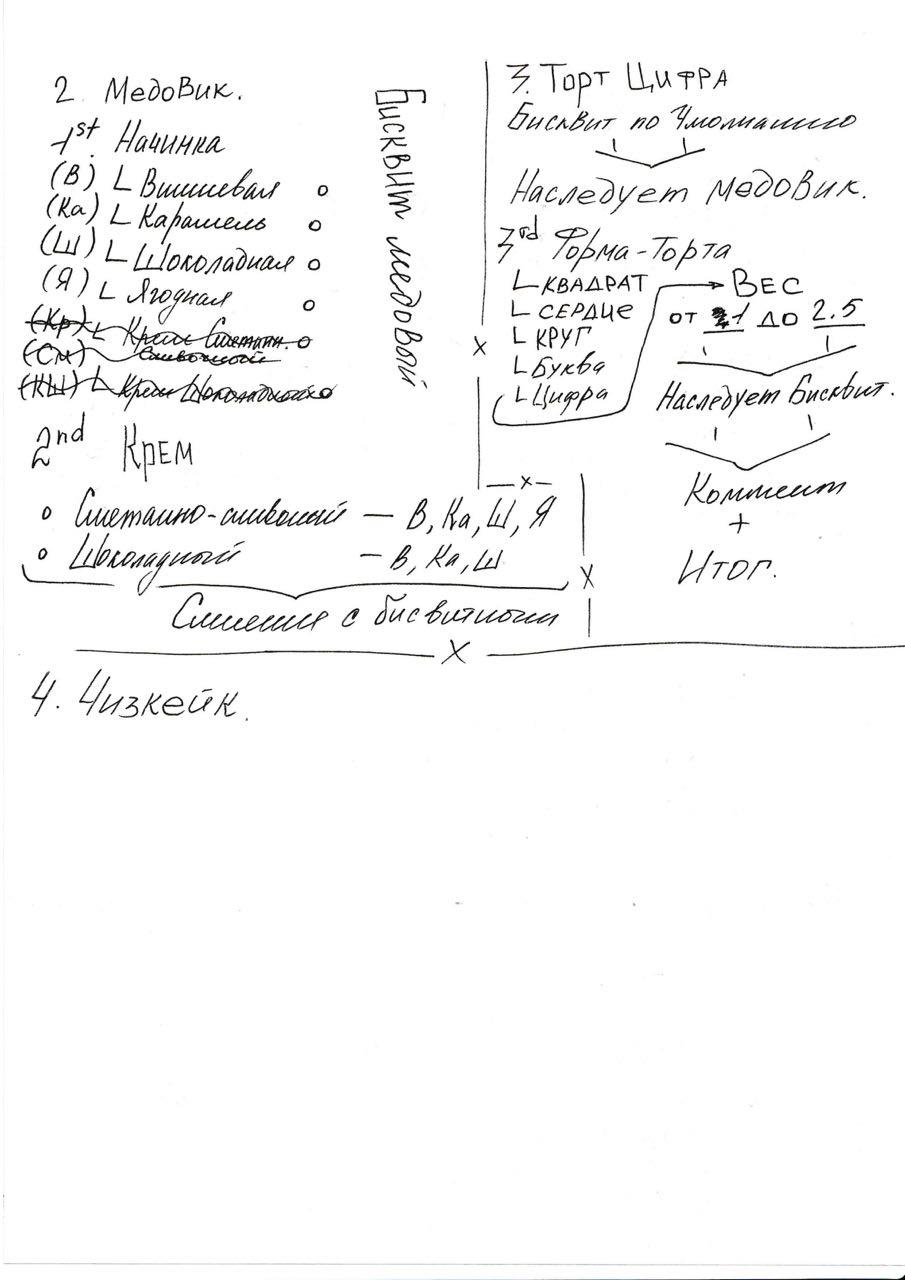 2. Медовик.
1st. Начинка
(В) L Вишневая o
(Ка) L Карамель o
(Ш) L Шоколадная o
(Я) L Ягодная o
(Кр) L Крем Сметанн. o
(См) Сливочный
(КШ) L Крем Шоколадный o
2nd Крем
o Сметанно-сливочный — В, Ка, Ш, Я
o Шоколадный — В, Ка, Ш
Бисквит медовый
3. Торт Цифра
Бисквит по Умолчанию
Наследует Медовик.
3rd Форма-Торта
L КВАДРАТ
L СЕРДЦЕ
L КРУГ
L Буква
L Цифра
Вес
от 1 до 2.5
Наследует Бисквит.
Коммент
+
Итог.
x
-x-
x
с
x
4. Чизкейк.